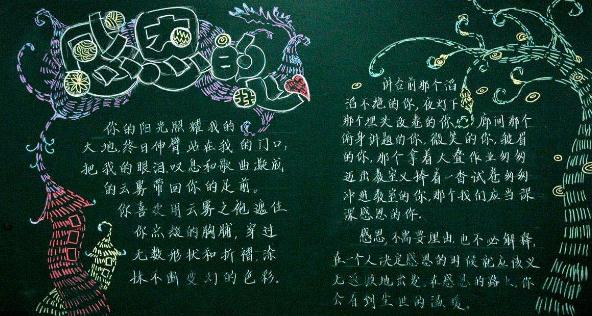 你的阳光照耀我的
大地,终日伸臂站在我的门口,
把我的眼泪,叹息和歌曲凝成
的云雾带回你的足前。
你喜爱用云雾之袍遮住
你点缀的胸脯,穿过
无数形状和折褶,涂
抹不断变幻的色彩.
讲台前那个滔
滔不绝的你,夜灯下
那个埋头改卷的你,廊间那个
俯身讲题的你,微笑的你,皱眉
的你,那个拿着作业匆匆
出教室又捧着一沓试卷匆匆
冲进教室的你,那个我们应当深
深感恩的你.
感恩,不需要理由,也不必解释,
在一个人决定感恩的时候就应该义
无返顾地出发,在感恩的路上,你
会看到尘世的温暖。